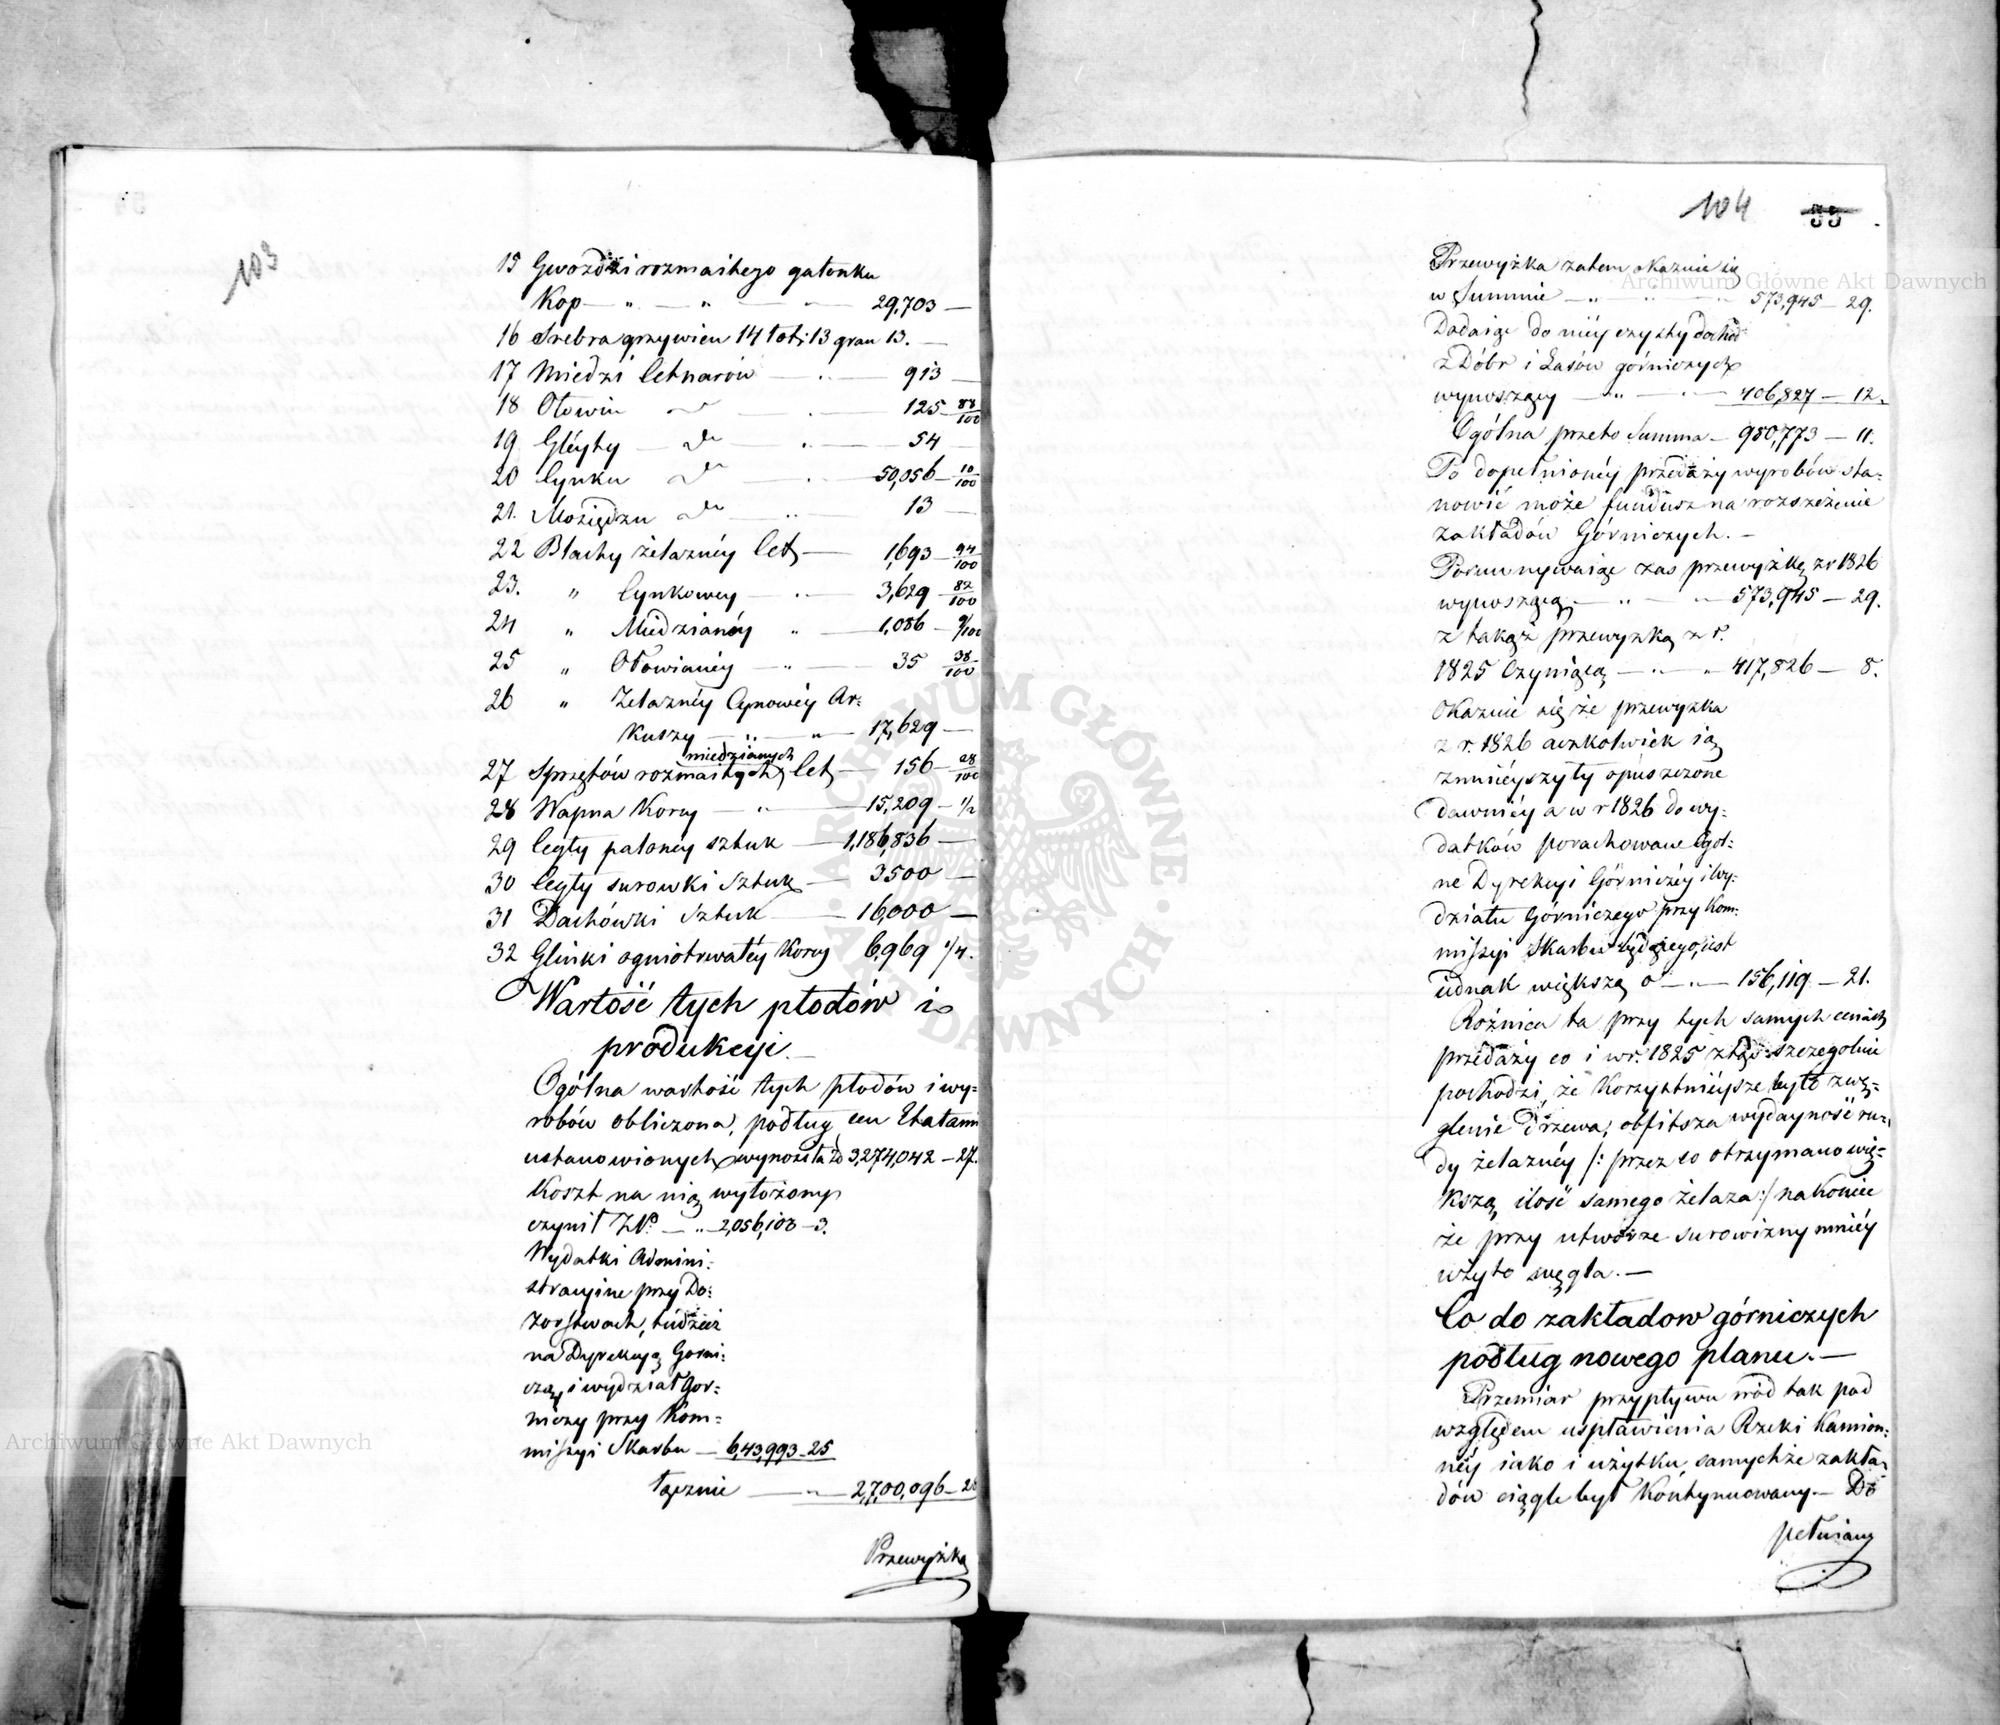 103
15 Gwoździ rozmaitego gatonku
Kop — " — " — 29,703 —
16 Srebra grzywien 14 łót: 13 gran 13. —
17 Miedzi Cetnarów — " — 913 —
18 Ołowiu do — " — 125 88/100
19 Gléyty — do — " — 54 —
20 Cynku do — " — 50,056 — 10/100
21. Mosiędzu do — " — 13 —
22 Blachy żelaznéy Cet — 1,693 — 94/100
23. " Cynkowey — " — 3,629 — 82/100
24 " Miedzianéy " — 1,086 — 9/100
25 " Ołowianéy — " — 35 38/100
26 " Żelaznéy Cynowéy Ar:
kuszy — " — " — 17,629 —
miedzianych
27 Sprzętów rozmaitych Cet — 156 — 28/100
28 Wapna Korcy — " — 15,209 — 1/2
29 Cegły paloney sztuk — 1,186,836 —
30 Cegły surowki Sztuk — 3500 —
31 Dachówki Sztuk — 16,000 —
32 Glinki ogniotrwałéy Korcy 6,969 1/4.
Wartość tych płodów i
produkcyi. —
Ogólna wartość tych płodów i wy-
robów obliczona, podług cen Etatami
ustanowionych wynosiła Zł 3,274,042 — 27.
Koszt na nią wyłożony
czynił ZłP. — " — 2,056,103 — 3.
Wydatki Admini:
stracyine przy Do:
zorstwach, tudzież
na Dyrekcyą Gorni:
czą, i wydział Gor=
niczy przy Kom=
missyi Skarbu — 643,993 — 25
łącznie — " — 2,700,096 — 28
Przewyżka
104 55
Przewyżka zatem okazuie się
w Summie — " — 573,945 — 29.
Dodaiąc do niéy czysty dochód
z Dóbr i Lasów górniczych
wynoszący — " — 406,827 — 12.
Ogólna przeto Summa — 980,773 — 11.
Po dopełnionéy przedaży wyrobów sta-
nowić może fundusz na rozszeżenie
zakładów Górniczych. —
Porównywaiąc zas przewyżkę z r 1826
wynoszącą — " — 573,945 — 29.
z takąż przewyzką z r.
1825 Czyniącą — " — " 417,826 — 8.
Okazuie się że przewyzka
z r. 1826 aczkolwiek ią
zmniéyszyły opuszczone
dawniéy a w r 1826 do wy:
datków porachowane Ogól:
ne Dyrekcyi Górniczéy i Wy:
działu Górniczego przy Kom:
missyi Skarbu będącego, iest
iednak większą o — " — 156,119 — 21.
Róźnica ta przy tych samych cenach
przedaży co i w r. 1825 ztąd szczegolnie
pochodzi, że Korzystniéysze było zwę=
glenie drzewa, obfitsza wydayność ru=
dy żelaznéy /: przez co otrzymano wię=
kszą ilość samego żelaza :/ nakoniec
że przy utworze surowizny mniéy
użyto węgla. —
Co do zakładow górniczych
podług nowego planu. —
Przemiar przypływu wód tak pod
względem uspławienia Rzeki Kamion:
néy iako i użytku, samychże zakła-
dów ciągle był Kontynuowany — Do
pełniany
Archiwum Główne Akt Dawnych
Archiwum Główne Akt Dawnych
· ARCHIWUM GŁÓWNE · AKT DAWNYCH ·